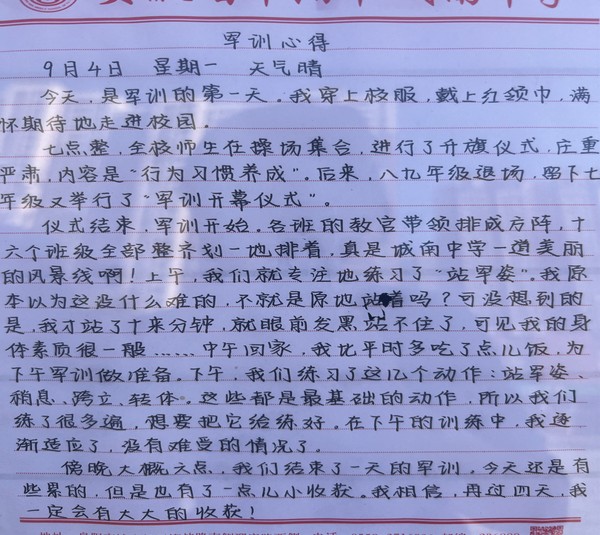 军训心得
9月4日 星期一 天气晴
今天,是军训的第一天。我穿上校服,戴上红领巾,满
怀期待地走进校园。
七点整,全校师生在操场集合,进行了升旗仪式,庄重
严肃,内容是“行为习惯养成”。后来,八九年级退场,留下七
年级又举行了“军训开幕仪式”。
仪式结束,军训开始。各班的教官带领排成方阵,十
六个班级全部整齐划一地排着,真是城南中学一道美丽
的风景线啊!上午,我们就专注地练习了“站军姿”。我原
本以为这没什么难的,不就是原地站着吗?可没想到的
是,我才站了十来分钟,就眼前发黑站不住了,可见我的身
体素质很一般……中午回家,我比平时多吃了点儿饭,为
下午军训做准备。下午,我们练习了这几个动作:站军姿、
稍息、跨立、转体。这些都是最基础的动作,所以我们
练了很多遍,想要把它给练好。在下午的训练中,我逐
渐适应了,没有难受的情况了。
傍晚大概六点,我们结束了一天的军训。今天还是有
些累的,但是也有了一点儿小收获。我相信,再过四天,我
一定会有大大的收获!